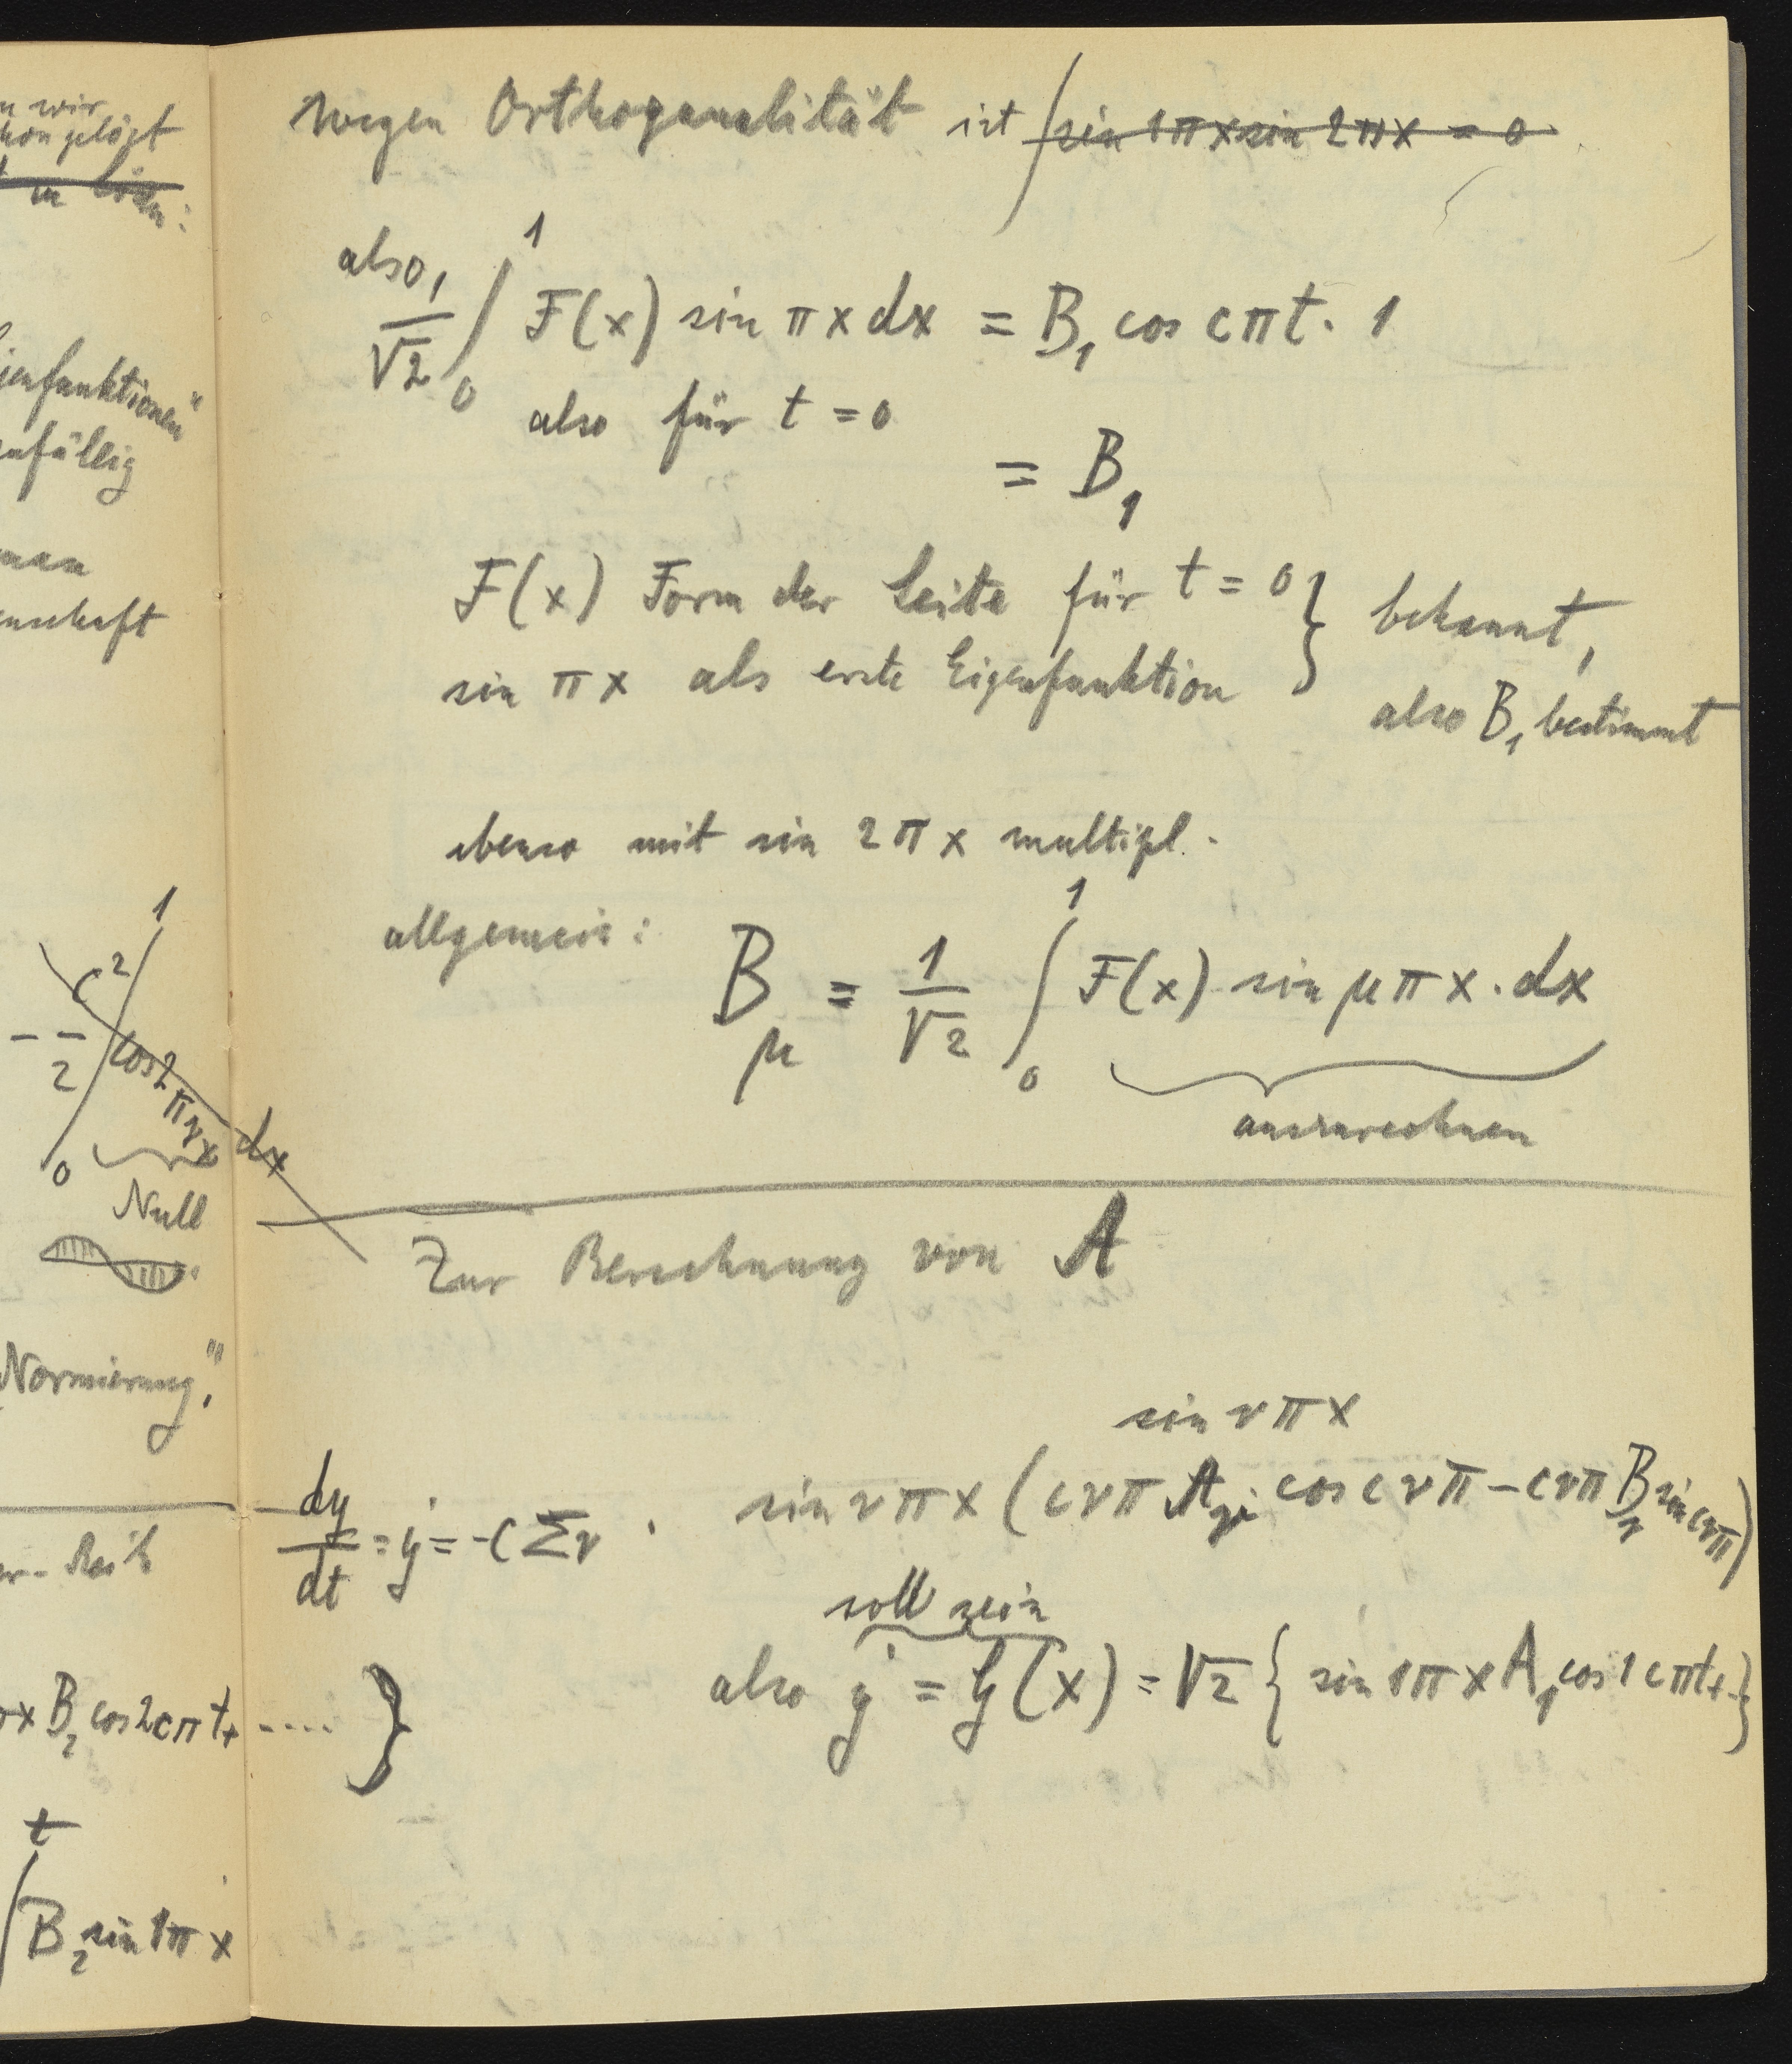 n wir
hon gelöst
in
igenfunktionen"
enfällig
man
enschaft
1
c²
- –
2
cos 2πνx dx
0
Null
Normierung."
x B₂ cos 2cπt + ....}
t
∫ B₂ sin 1πx
wegen Orthogonalität ist ∫ sin 1πx sin 2πx = 0
also 1/√2 ∫₀¹ F(x) sin πx dx = B₁ cos cπt · 1
also für t = 0
= B₁
F(x) Form der Seite für t = 0 } bekannt,
sin πx als erste Eigenfunktion
also B₁ bestimmt
ebenso mit sin 2πx multipl.
allgemein: B_μ = 1/√2 ∫₀¹ F(x) sin μπx · dx
auszurechnen
Zur Berechnung von A
sin νπx
dy/dt = ẏ = -c Σν · sin νπx (cνπ A_ν cos cνπ – cνπ B_ν sin cνπ)
soll sein
also ẏ = G(x) = √2 { sin 1πx A₁ cos 1cπt + }